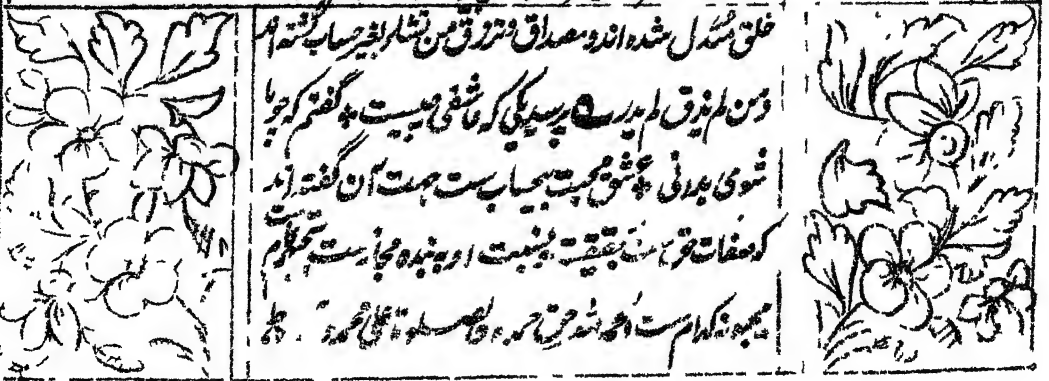 خلق مبدل شده اند و مصداق و ترزق من تشاء بغیر حساب گشته اند
ومن لم یذق لم یدر پرسید یکی که عاشقی چیست گفتم که چو ما
شوی بدانی عشق محبت بیحساب ست جهت آن گفته اند
که صفات حق است بحقیقت و نسبت او به بنده مجاز ست یحبهم
یحبونه کدام ست الحمد لله حق حمده والصلوة علی محمد و